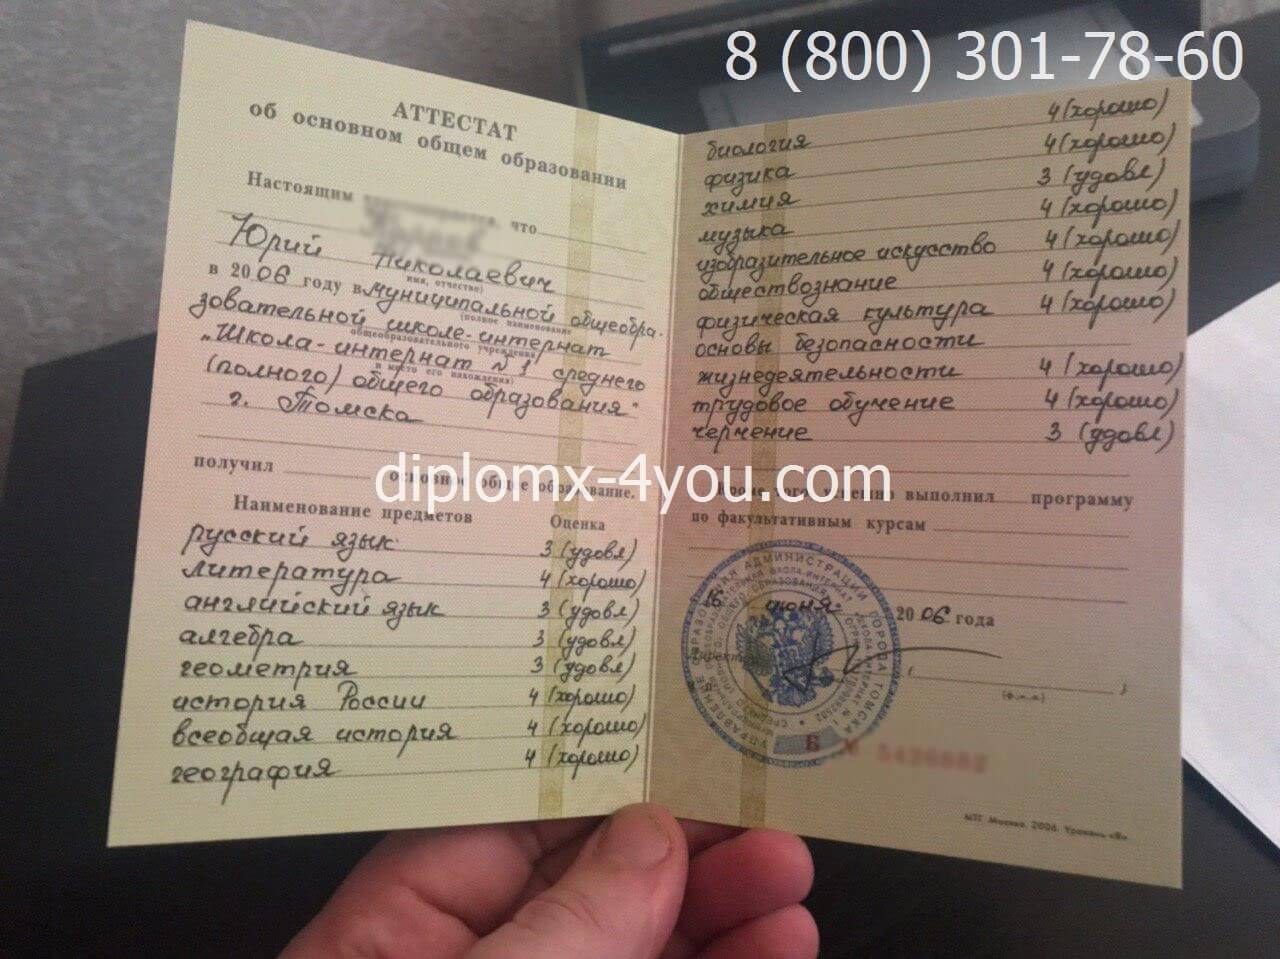 8 (800) 301-78-60
АТТЕСТАТ
об основном общем образовании
Настоящим что
Юрий Николаевич
имя, отчество)
в 2006 году в муниципальной общеобра-
(полное наименование
зовательной школе-интернат
общеобразовательного учреждения
„Школа-интернат №1 среднего
и место его нахождения)
(полного) общего образования"
г. Томска
получил
основное общее образование.
Наименование предметов Оценка
русский язык 3 (удовл)
литература 4 (хорошо)
английский язык 3 (удовл)
алгебра 3 (удовл)
геометрия 3 (удовл)
история России 4 (хорошо)
всеобщая история 4 (хорошо)
география 4 (хорошо)
diplomx-4you.com
биология 4 (хорошо)
физика 4 (хорошо)
химия 3 (удовл)
музыка 4 (хорошо)
изобразительное искусство 4 (хорошо)
обществознание 4 (хорошо)
физическая культура 4 (хорошо)
основы безопасности
жизнедеятельности 4 (хорошо)
трудовое обучение 4 (хорошо)
черчение 3 (удовл)
Кроме того, успешно выполнил программу
по факультативным курсам
июня 2006 года
Директор
(ф.и.о)
УПРАВЛЕНИЕ ОБРАЗОВАНИЯ АДМИНИСТРАЦИИ ГОРОДА ТОМСКА
Б №
МПГ, Москва. 2006. Уровень «В»